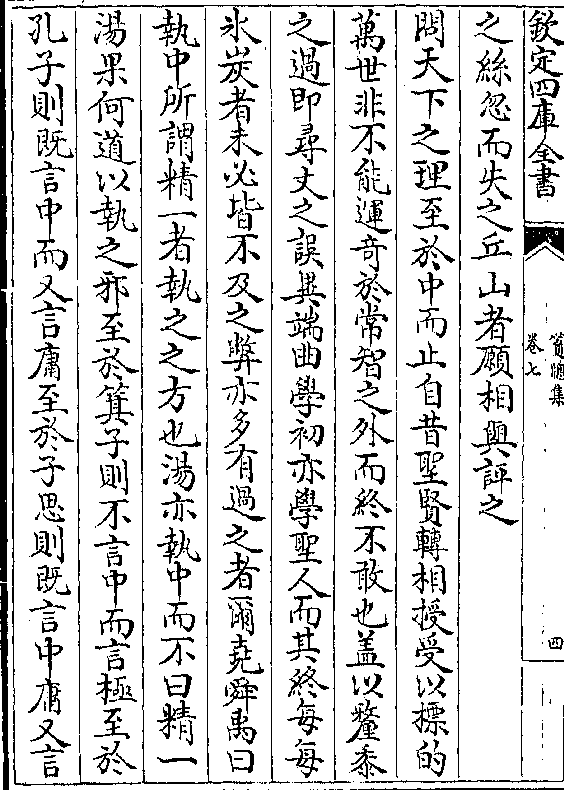 欽定四庫全書
篔牕集
卷七
四
之絲忽而失之丘山者願相與評之
問天下之理至於中而止自昔聖賢轉相授受以標的
萬世非不能運竒於常智之外而終不敢也盖以釐黍
之過即尋丈之誤異端曲學初亦學聖人而其終每每
氷炭者未必皆不及之弊亦多有過之者爾堯舜禹曰
執中所謂精一者執之之方也湯亦執中而不曰精一
湯果何道以執之邪至於箕子則不言中而言極至於
孔子則既言中而又言庸至於子思則既言中庸又言